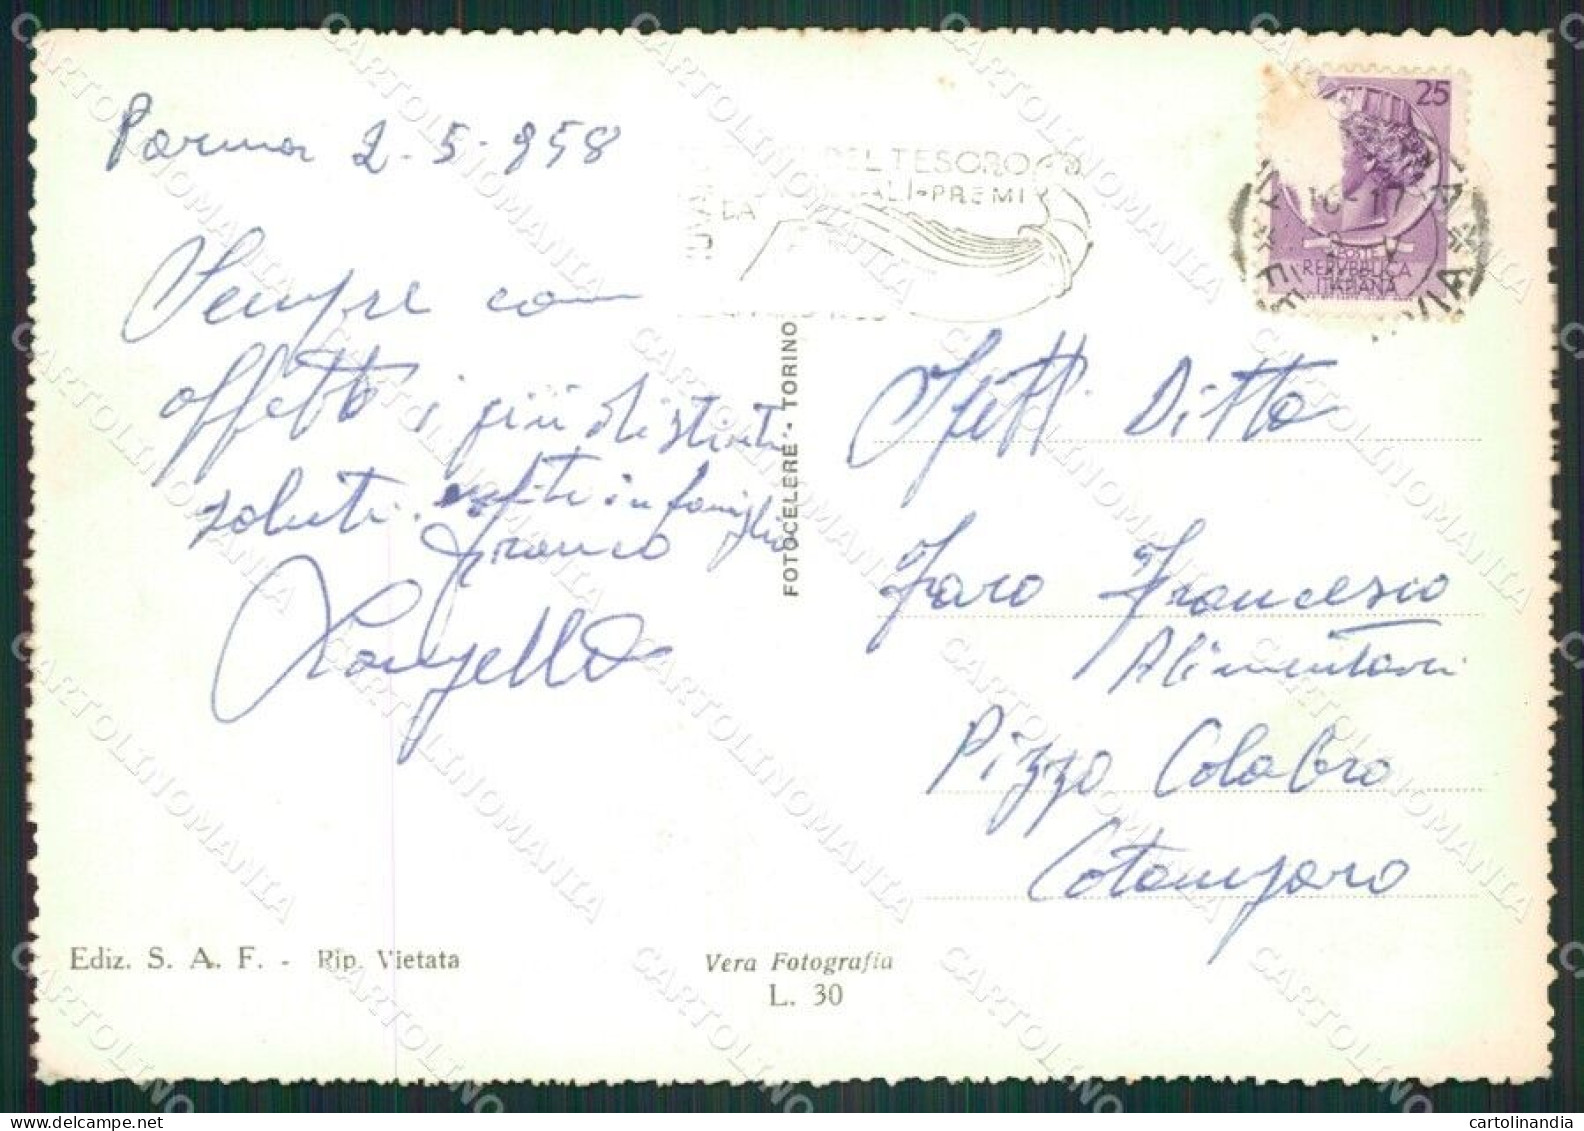 Parma 2-5-958
Sempre con
affetto i più distinti
saluti. in famiglia
Franco
DEL TESORO
ALI-PREMI
25
POSTE
REPVBBLICA
ITALIANA
FOTOCELERE - TORINO
Spett. Ditta
Faro Francesco
Alimentari
Pizzo Calabro
Catanzaro
Ediz. S. A. F. - Rip. Vietata
Vera Fotografia
L. 30
CARTOLINOMANIA
cartolinandia